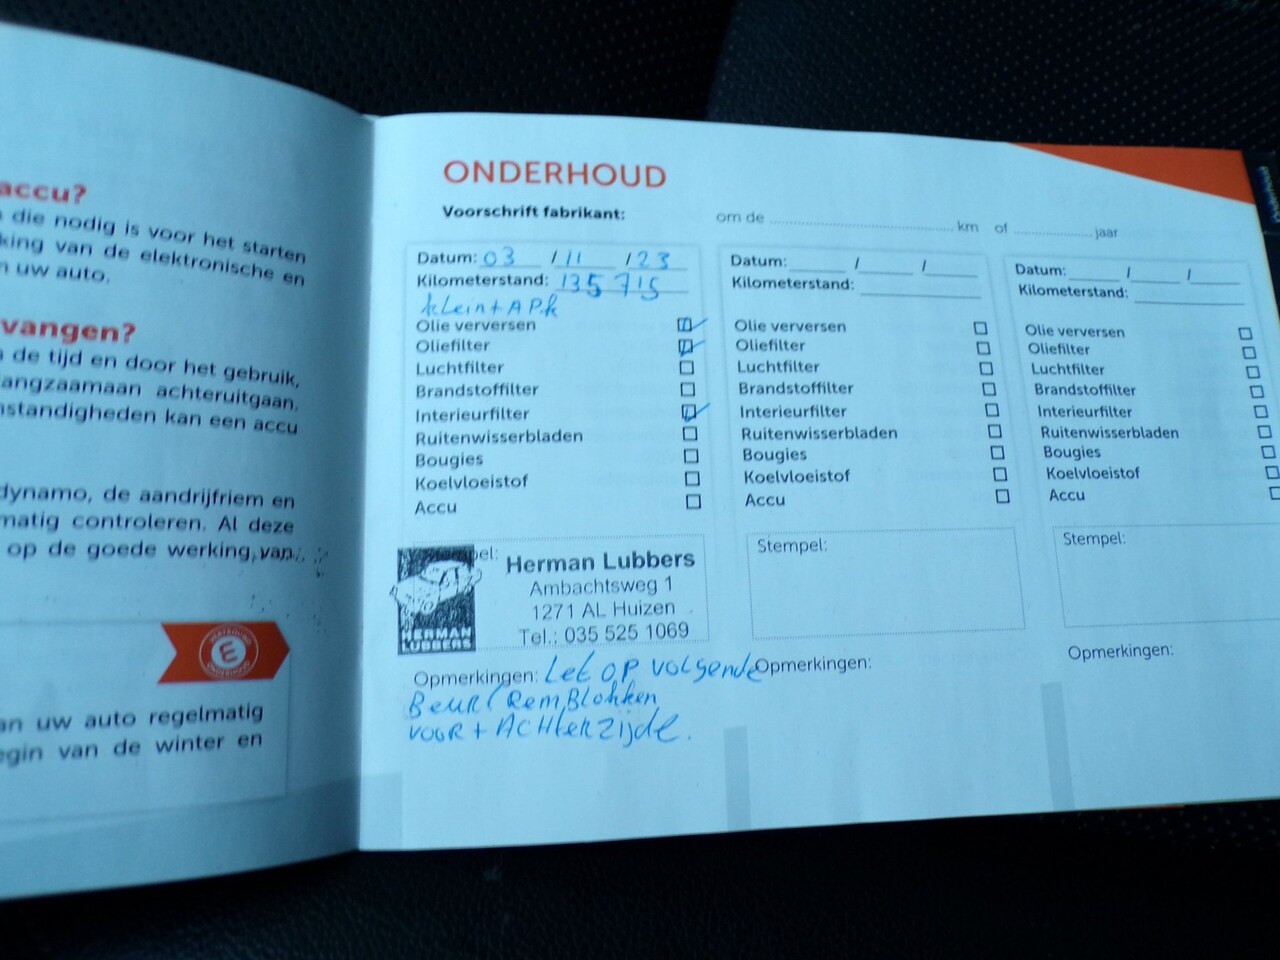 accu?
die nodig is voor het starten
king van de elektronische en
n uw auto.
vangen?
de tijd en door het gebruik,
angzaamaan achteruitgaan.
nstandigheden kan een accu
dynamo, de aandrijfriem en
matig controleren. Al deze
op de goede werking van
E
an uw auto regelmatig
egin van de winter en
ONDERHOUD
Voorschrift fabrikant: om de km of jaar
Datum: 03 / 11 / 23
Kilometerstand: 135 715
klein + APK
Olie verversen
Oliefilter
Luchtfilter
Brandstoffilter
Interieurfilter
Ruitenwisserbladen
Bougies
Koelvloeistof
Accu
pel:
HERMAN
LUBBERS
Herman Lubbers
Ambachtsweg 1
1271 AL Huizen
Tel.: 035 525 1069
Opmerkingen: Let op volgende
Beurt Remblokken
voor + ACHterzijde.
Datum: / /
Kilometerstand:
Olie verversen
Oliefilter
Luchtfilter
Brandstoffilter
Interieurfilter
Ruitenwisserbladen
Bougies
Koelvloeistof
Accu
Stempel:
Opmerkingen:
Datum: / /
Kilometerstand:
Olie verversen
Oliefilter
Luchtfilter
Brandstoffilter
Interieurfilter
Ruitenwisserbladen
Bougies
Koelvloeistof
Accu
Stempel:
Opmerkingen: